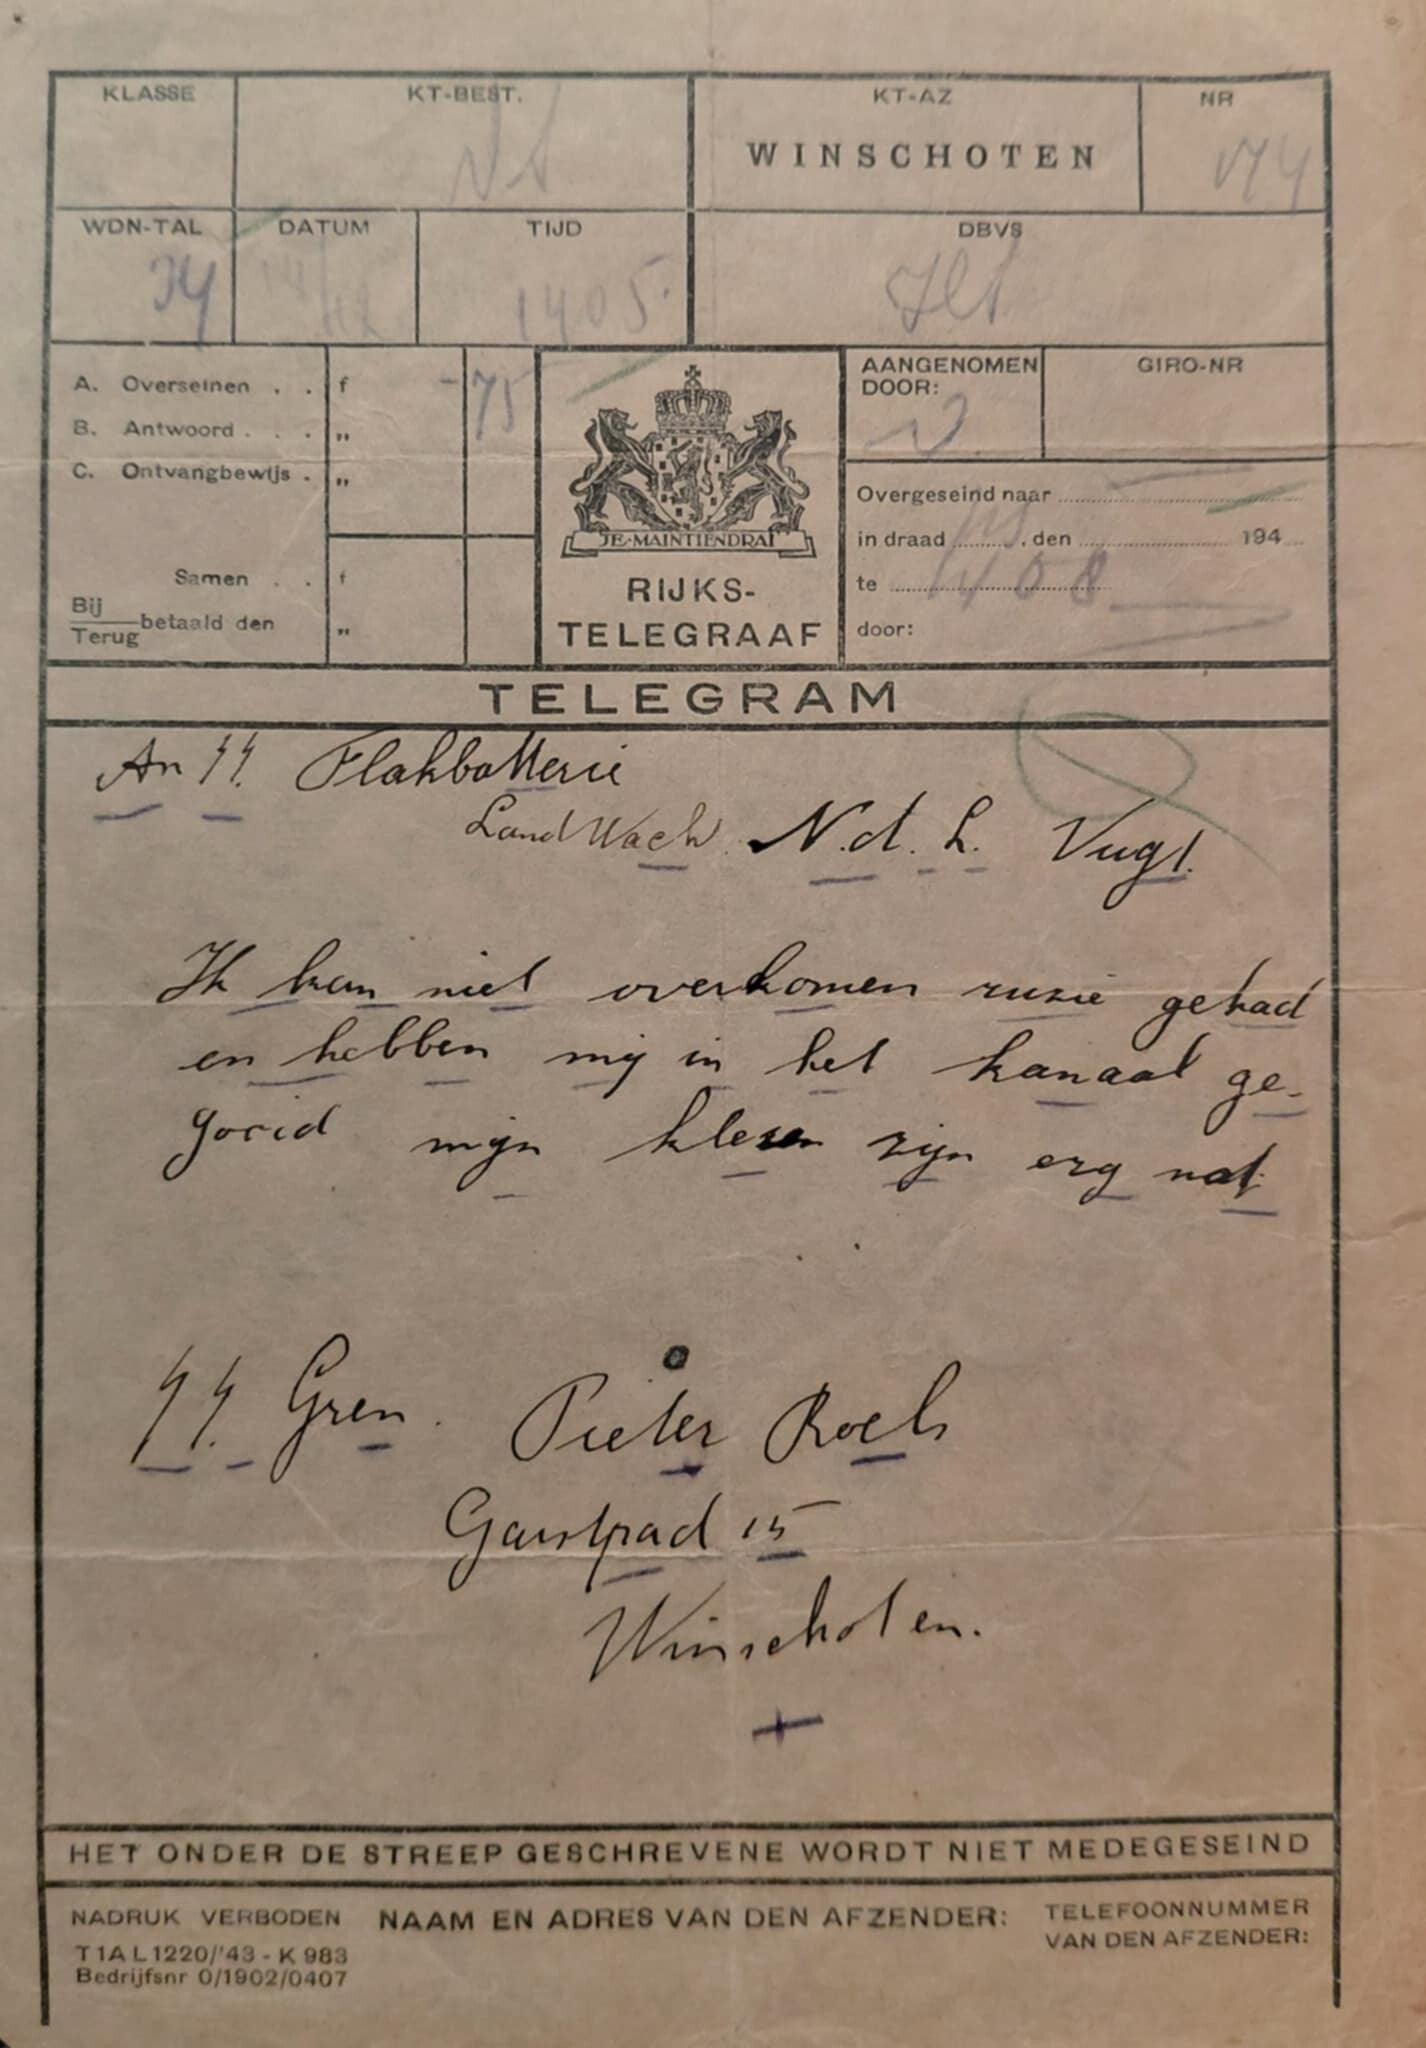 KLASSE KT-BEST. KT-AZ NR
WINSCHOTEN
WDN-TAL DATUM TIJD DBVS
34 1405
A. Overseinen . . f -75
B. Antwoord . . . "
C. Ontvangbewijs . "
Samen . . f
Bij
Terug betaald den "
JE·MAINTIENDRAI
RIJKS-
TELEGRAAF
AANGENOMEN
DOOR:
GIRO-NR
Overgeseind naar
in draad , den 194
te 1408
door:
TELEGRAM
An SS. Flakbatterie
Land Wach N.d. L. Vugt.
Ik kan niet overkomen ruzie gehad
en hebben mij in het kanaal ge-
gooid mijn kleren zijn erg nat
SS. Gren. Pieter Roels
Garstpad 15
Winschoten.
+
HET ONDER DE STREEP GESCHREVENE WORDT NIET MEDEGESEIND
NADRUK VERBODEN NAAM EN ADRES VAN DEN AFZENDER: TELEFOONNUMMER
VAN DEN AFZENDER:
T1A L1220/'43 - K 983
Bedrijfsnr 0/1902/0407